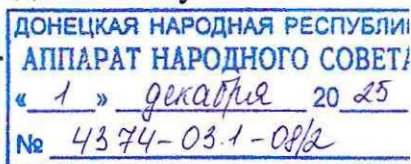 ДОНЕЦКАЯ НАРОДНАЯ РЕСПУБЛИ
АППАРАТ НАРОДНОГО СОВЕТА
« 1 » декабря 20 25
№ 4374-03.1-08/2